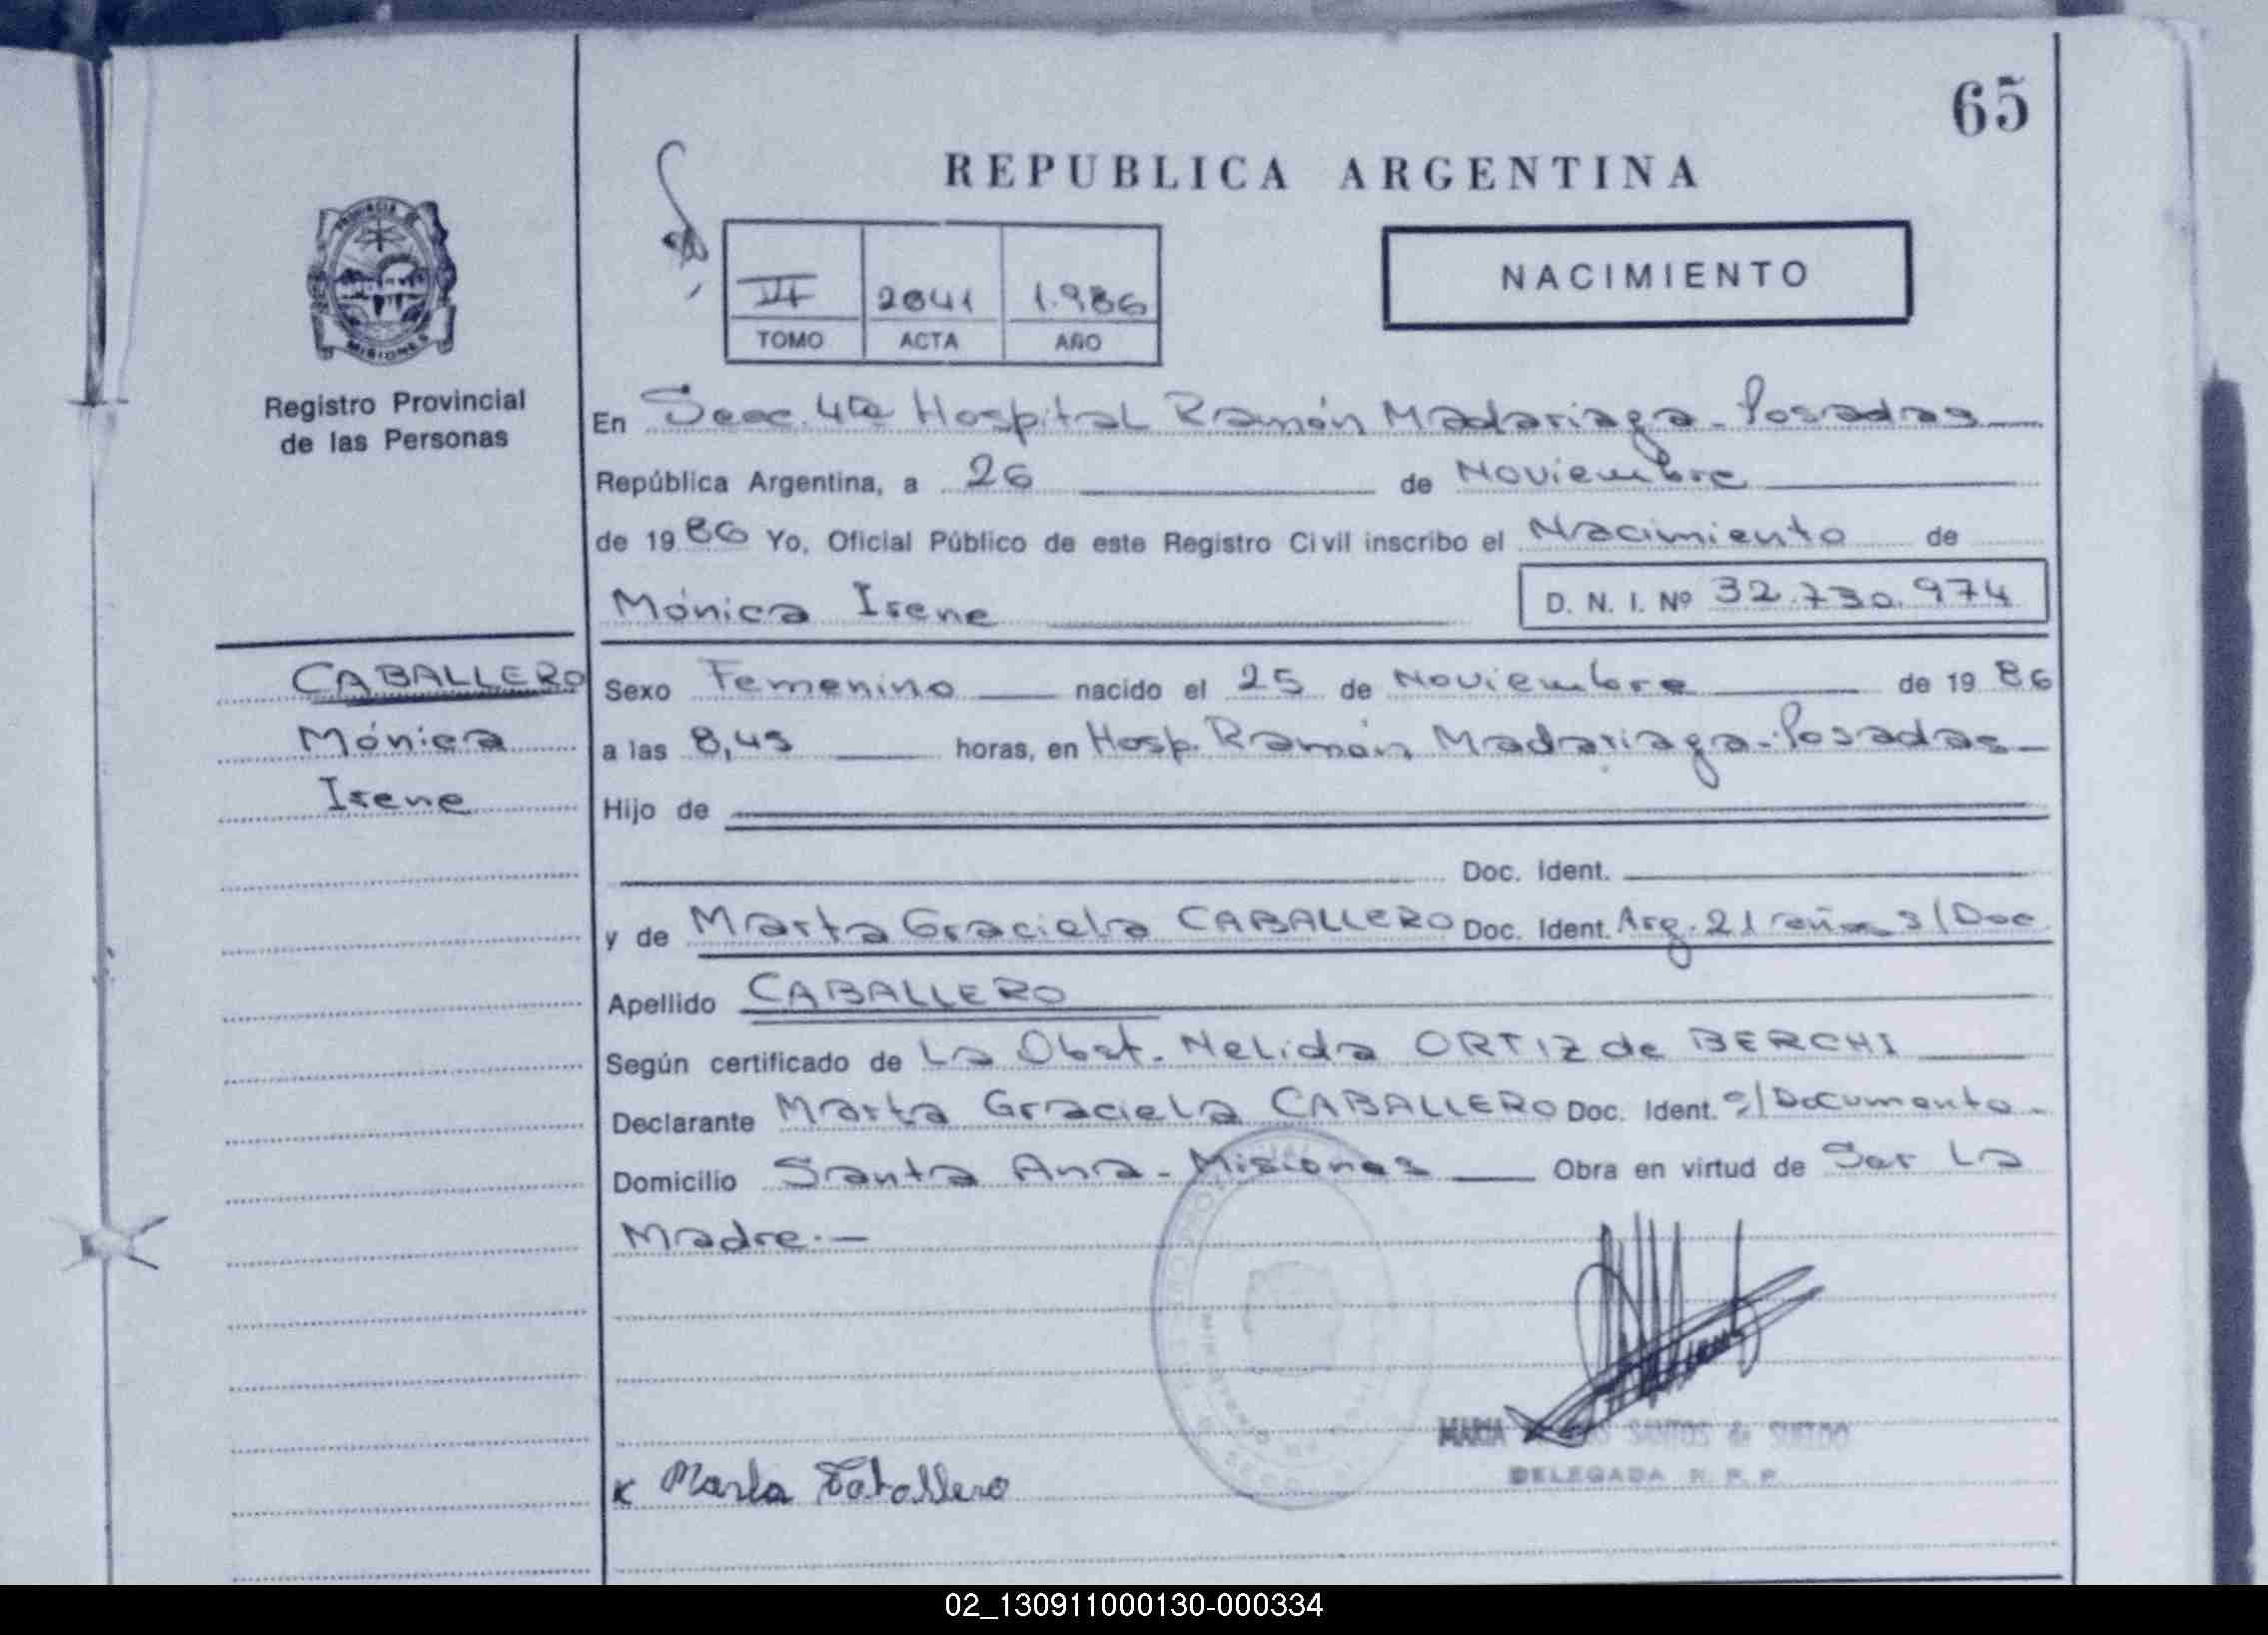 65
REPUBLICA ARGENTINA
PROVINCIA DE
MISIONES
Registro Provincial
de las Personas
2641 1.986
TOMO ACTA AÑO
NACIMIENTO
En Secc. 4ta Hospital Ramón Madariaga - Posadas
República Argentina, a 26 de Noviembre
de 1986 Yo, Oficial Público de este Registro Civil inscribo el Nacimiento de
Mónica Irene D. N. I. Nº 32.730.974
CABALLERO
Mónica
Irene
Sexo Femenino nacido el 25 de Noviembre de 1986
a las 8,45 horas, en Hosp. Ramón Madariaga - Posadas
Hijo de
Doc. Ident.
y de Marta Graciela CABALLERO Doc. Ident. Arg. 21 años s/Doc
Apellido CABALLERO
Según certificado de La Obst. Nelida ORTIZ de BERCHI
Declarante Marta Graciela CABALLERO Doc. Ident. s/Documento.
Domicilio Santa Ana - Misiones Obra en virtud de Ser La
Madre.-
MARIA SANTOS de SUELDO
DELEGADA R. P. P.
x Marta Caballero
02_130911000130-000334